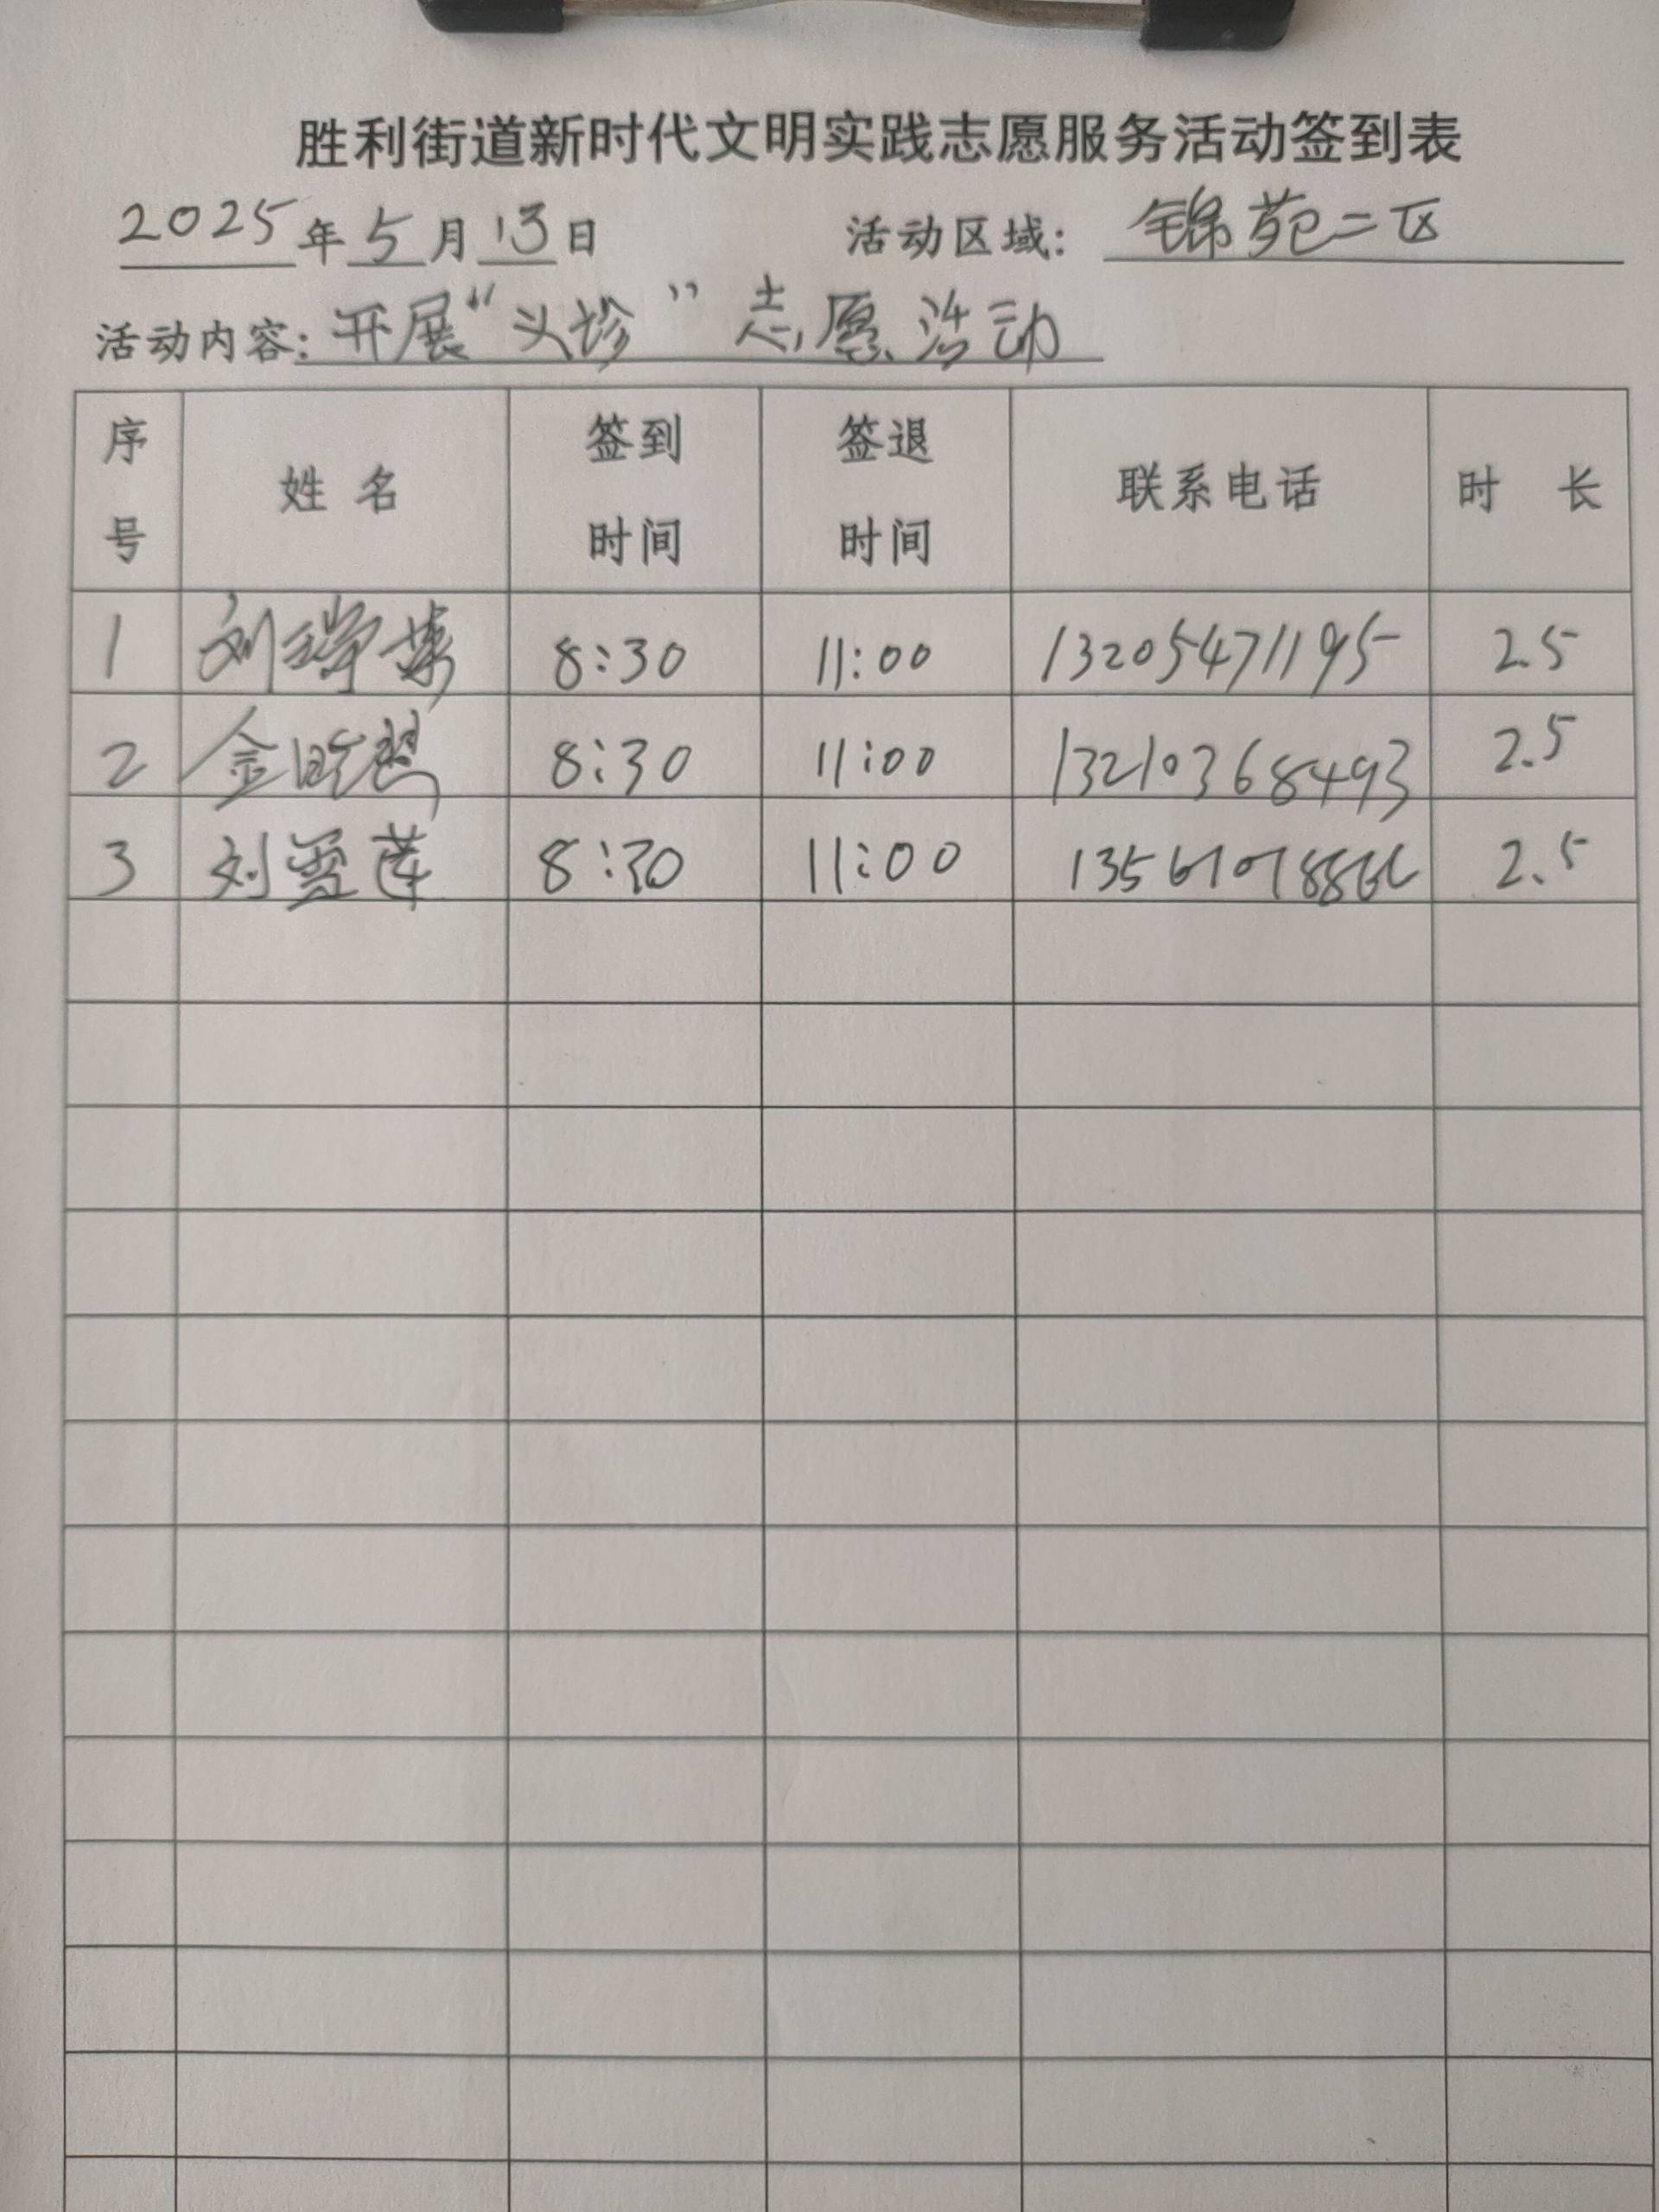 胜利街道新时代文明实践志愿服务活动签到表
2025年5月13日 活动区域：锦苑二区
活动内容：开展“义诊”志愿活动
序号 姓名 签到时间 签退时间 联系电话 时长
1 刘瑞莲 8:30 11:00 13205471195 2.5
2 金 8:30 11:00 13210368493 2.5
3 刘雪莲 8:30 11:00 2.5